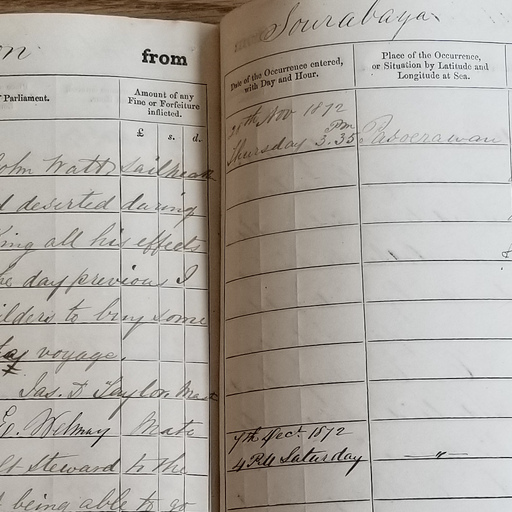 from
Parliament.
Amount of any
Fine or Forfeiture
inflicted.
£ s. d.
John Watt sailmaker
deserted during
all his effects
day previous I
to buy some
voyage.
Jas. D Taylor Mast
Mate
Steward to the
being able to go
Sourabaya
Date of the Occurrence entered,
with Day and Hour.
Place of the Occurrence,
or Situation by Latitude and
Longitude at Sea.
28th Nov 1872
Thursday 3.35 pm Pasoerawan
7th Dec. 1872
4 PM Saturday —〃—